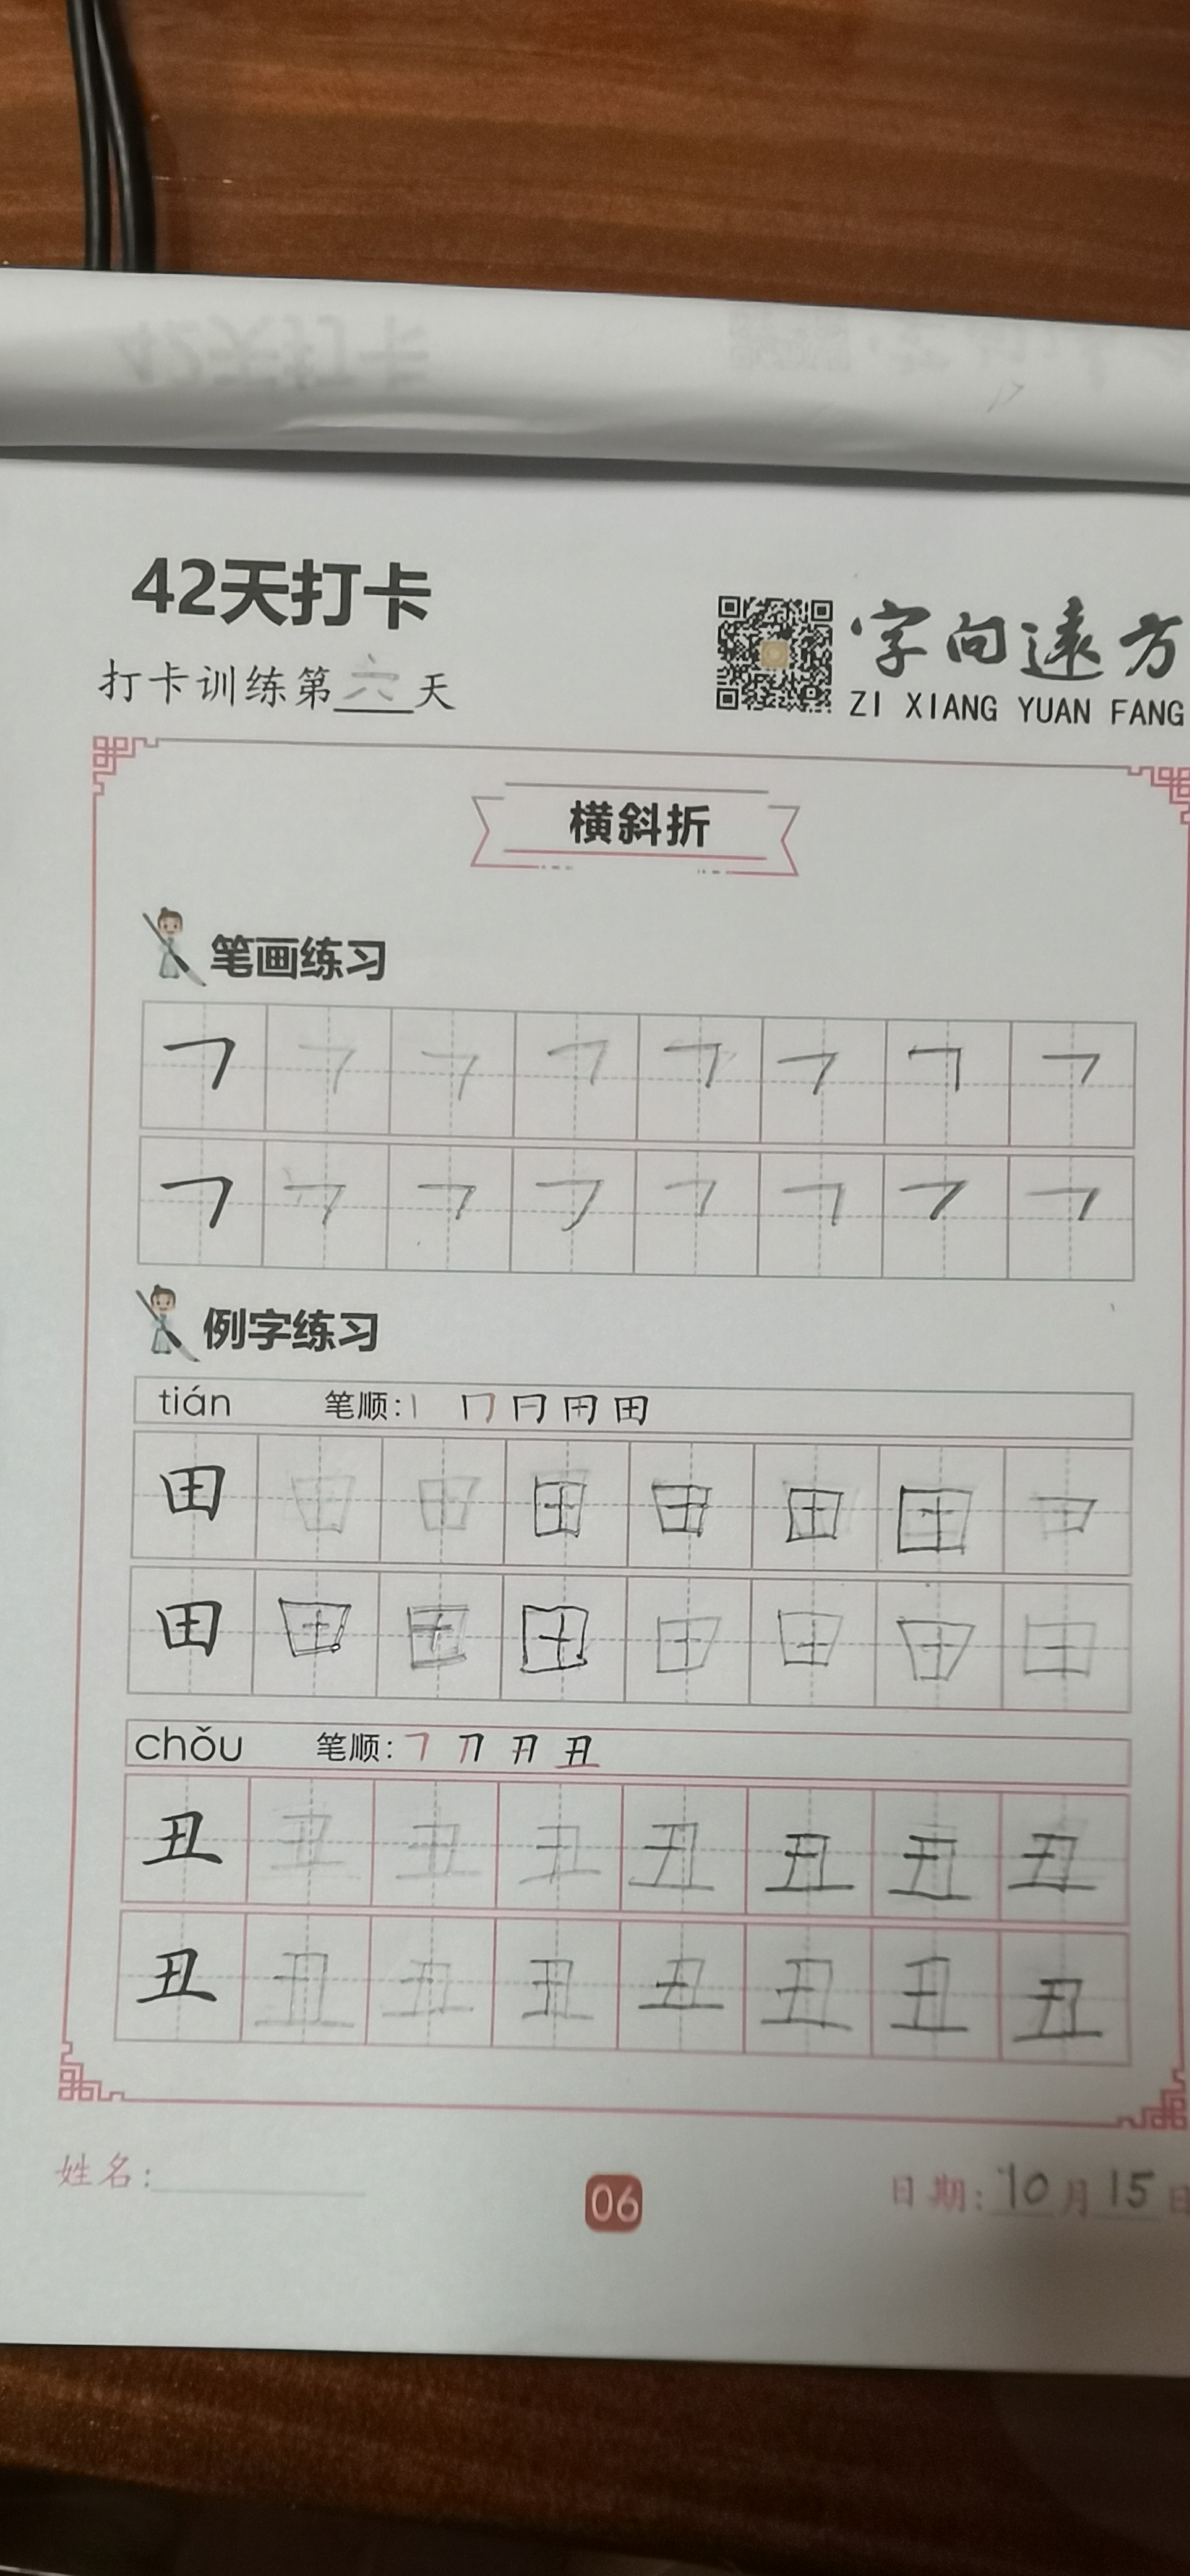 42天打卡
打卡训练第六天
字向遠方
ZI XIANG YUAN FANG
横斜折
笔画练习
例字练习
tián 笔顺:
田 田 田 田 田 田 田
田 田 田 田 田 田 田 田
chǒu 笔顺:
丑 丑 丑 丑 丑 丑 丑 丑
丑 丑 丑 丑 丑 丑 丑 丑
姓名:
06
日期:10月15日